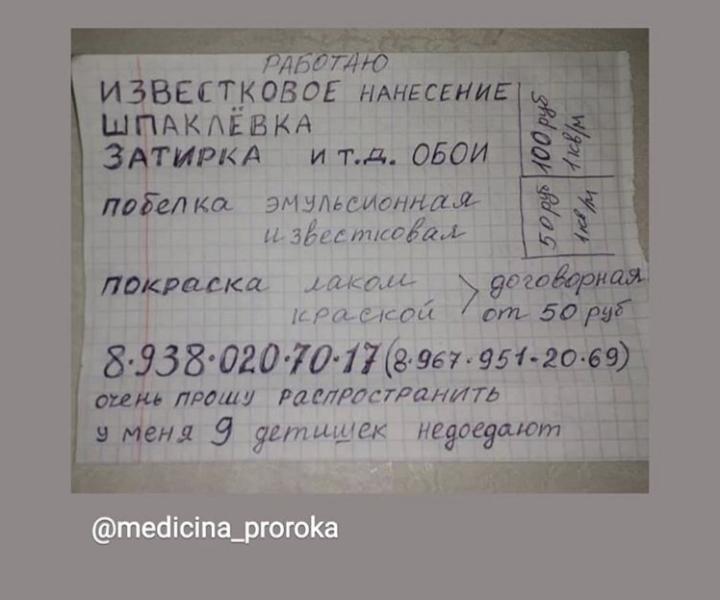 РАБОТАЮ
ИЗВЕСТКОВОЕ НАНЕСЕНИЕ
ШПАКЛЁВКА
ЗАТИРКА И Т.Д. ОБОИ
100 руб
1 кв/м
побелка эмульсионная
известковая
50 руб
1 кв/м
покраска лаком договорная
краской от 50 руб
8·938·020·70·17 (8·967·951·20·69)
очень прошу распространить
у меня 9 детишек недоедают
@medicina_proroka